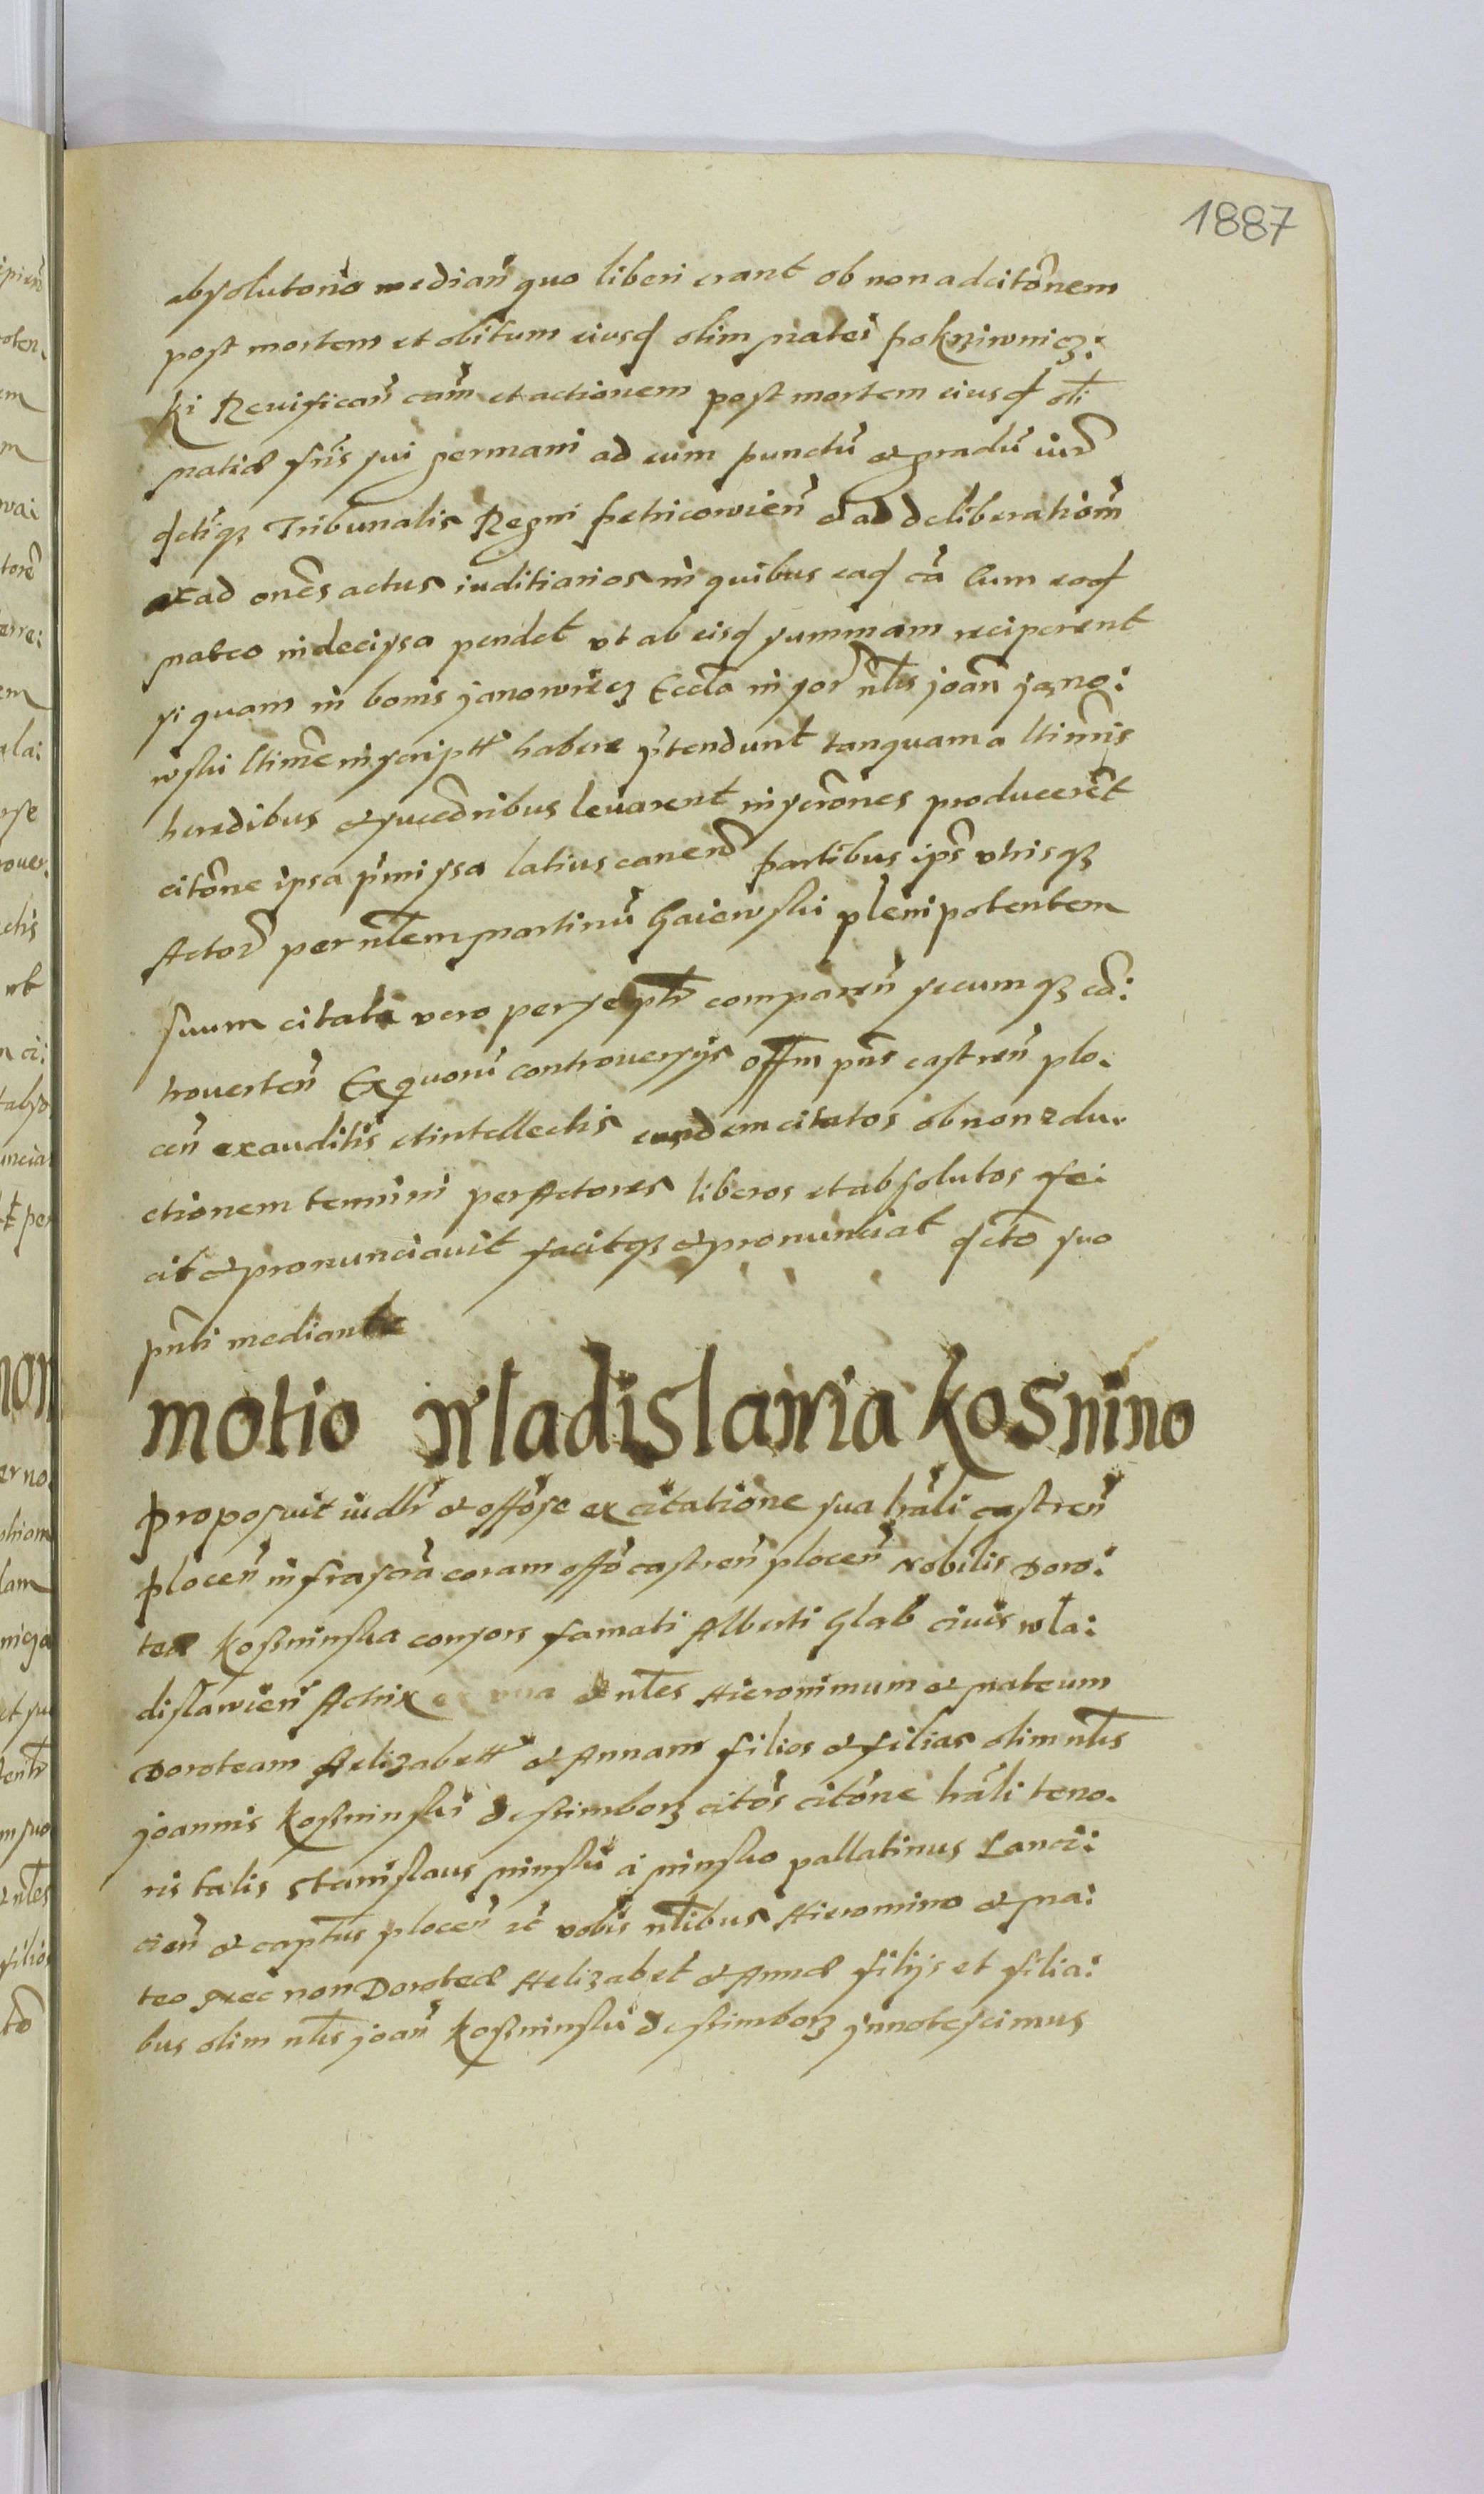 1887
absolutorio median̄ quo liberi erant ob non adcitōnem
post mortem et obitum eiusd olim matei pokrziwnicz:
ki Reuificań cam̄ et actionem post mortem eiusd oli
matiæ frīs sui germani ad eum punctū et gradū iur̄
dctīqꝫ Tribunalis Regni petricowień et ad deliberatiōm̄
et ad onēs actus iuditiarios in quibus ead cā cum eod
mateo indecissa pendet vt ab eisd summam reciperent
si quam in bonis janowiecz Eccla in sor nlis joān jano:
wski ltimē inscriptt habere p̄tendunt tanquam a ltimis
heredibus et succedribus leuarent inscrōnes producerēt
citōne ipsa p̄missa latius canen̄ partibus ips̄ vtrisqꝫ
Actor̄ per nlem martinū Gaiewski plenipotentem
suum citata vero per se pntr comparen̄ secumqꝫ cō:
trouerten̄ Ex quorū controuersijs offm̄ pn̄s castren̄ plo.
cen̄ exauditis et intellectis eosdem citatos ob non edu.
ctionem termini per Actores liberos et absolutos fe:
cit et pronunciauit facitqꝫ et pronunciat dcto suo
pn̄ti mediante
motio wladislawia kosnino
proposuit iudlr̄ et offōse ex citatione sua lrāli castren̄
plocen̄ infrascrā coram offō castren̄ plocen̄ Nobilis Doro:
tea Kosninska consors famati Alberti Glab ciuis wla:
dislawien̄ Actrix nles Hieronimum et mateum
Doroteam Helizabett et Annam filios et filias olim nlis
joannis Kosninski de stimborz citōs citōne lrāli teno.
ris talis Stanislaus minski a minsko pallatinus Lanci:
cien̄ et captn̄s plocen̄ etc̄ vobis nlibus Hieronimo et ma:
teo nec non Doroteæ Helizabet et Annæ filijs et filia:
bus olim nlis joan̄ Kosninski de stimborz jnnotescimus